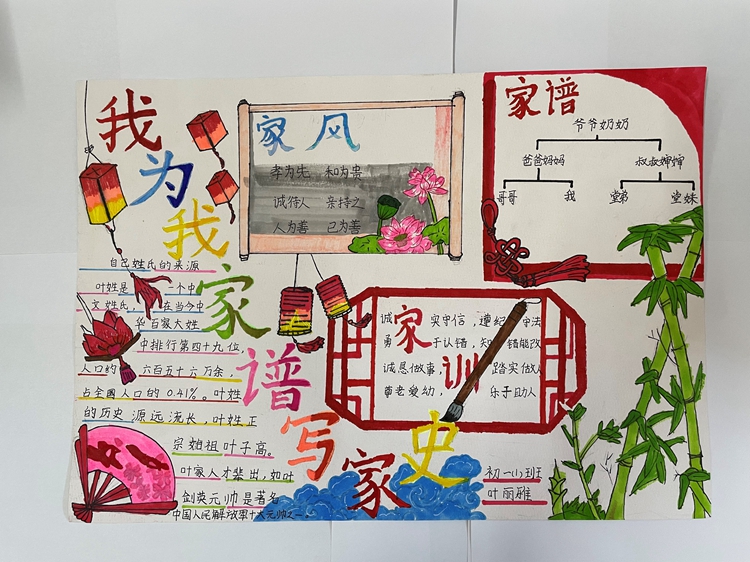 我为我家谱写家史
家风
孝为先 和为贵
诚待人 亲持之
人为善 己为善
家谱
爷爷奶奶
爸爸妈妈 叔叔婶婶
哥哥 我 堂弟 堂妹
自己姓氏的来源
叶姓是 一个中
文姓氏, 在当今中
华百家大姓
中排行第四十九位,
人口约 六百五十六万余,
占全国人口的0.41%。叶姓
的历史源远流长,叶姓正
宗始祖叶子高。
叶家人才辈出,如叶
剑英元帅是著名
中国人民解放军十大元帅之一。
家训
诚 实守信,遵纪守法
勇于认错,知错能改
诚恳做事,踏实做人
尊老爱幼,乐于助人
初一(1)班
叶丽雅